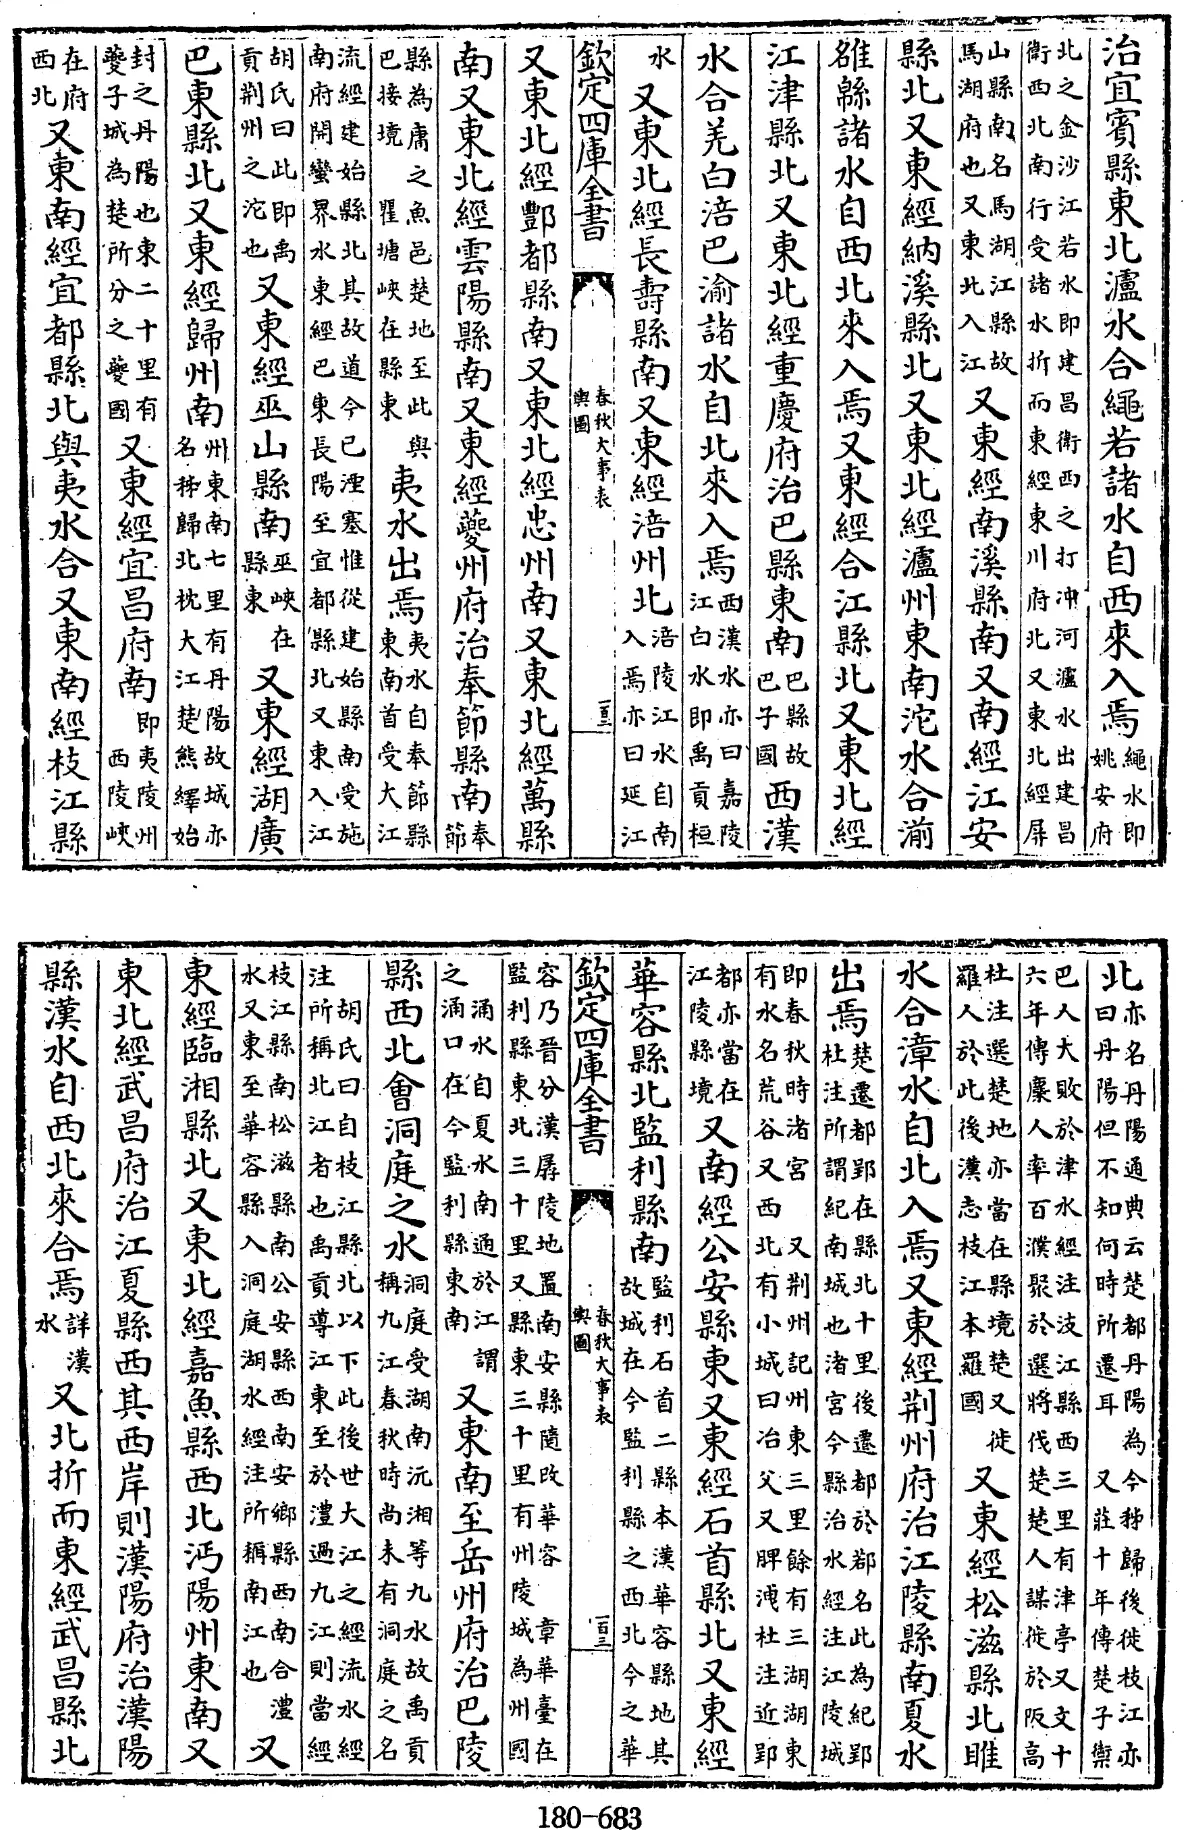 治宜賓縣東北瀘水合繩若諸水自西來入焉繩水即姚安府
北之金沙江若水即建昌衛西之打冲河瀘水出建昌
衛西北南行受諸水折而東經東川府北又東北經屏
山縣南名馬湖江縣故馬湖府也又東北入江又東經南溪縣南又南經江安
縣北又東經納溪縣北又東北經瀘州東南沱水合湔
雒緜諸水自西北來入焉又東經合江縣北又東北經
江津縣北又東北經重慶府治巴縣東南巴縣故巴子國西漢
水合羌白涪巴渝諸水自北來入焉西漢水亦曰嘉陵江白水即禹貢桓
水又東北經長壽縣南又東經涪州北涪陵江水自南入焉亦曰延江
欽定四庫全書
春秋大事表
輿圖
又東北經酆都縣南又東北經忠州南又東北經萬縣
南又東北經雲陽縣南又東經夔州府治奉節縣南奉節
縣為庸之魚邑楚地至此與巴接境瞿塘峽在縣東夷水出焉夷水自奉節縣東南首受大江
流經建始縣北其故道今已湮塞惟從建始縣南受施
南府開蠻界水東經巴東長陽至宜都縣北又東入江
胡氏曰此即禹貢荆州之沱也又東經巫山縣南巫峽在縣東又東經湖廣
巴東縣北又東經歸州南州東南七里有丹陽故城亦名秭歸北枕大江楚熊繹始
封之丹陽也東二十里有夔子城為楚所分之夔國又東經宜昌府南即夷陵州西陵峽
在府西北又東南經宜都縣北與夷水合又東南經枝江縣
北亦名丹陽通典云楚都丹陽為今秭歸後徙枝江亦曰丹陽但不知何時所遷耳又莊十年傳楚子禦
巴人大敗於津水經注汥江縣西三里有津亭又文十
六年傳麇人率百濮聚於選將伐楚楚人謀徙於阪高
杜注選楚地亦當在縣境楚又徙羅人於此後漢志枝江本羅國又東經松滋縣北雎
水合漳水自北入焉又東經荆州府治江陵縣南夏水
出焉楚遷都郢在縣北十里後遷都於鄀名此為紀郢杜注所謂紀南城也渚宮今縣治水經注江陵城
即春秋時渚宮又荆州記州東三里餘有三湖湖東
有水名荒谷又西北有小城曰冶父又脾洩杜注近郢
都亦當在江陵縣境又南經公安縣東又東經石首縣北又東經
華容縣北監利縣南監利石首二縣本漢華容縣地其故城在今監利縣之西北今之華
欽定四庫全書
春秋大事表
輿圖
一百三
容乃晉分漢孱陵地置南安縣隨改華容章華臺在
監利縣東北三十里又縣東三十里有州陵城為州國
涌水自夏水南通於江謂之涌口在今監利縣東南又東南至岳州府治巴陵
縣西北會洞庭之水洞庭受湖南沅湘等九水故禹貢稱九江春秋時尚未有洞庭之名
胡氏曰自枝江縣北以下此後世大江之經流水經
注所稱北江者也禹貢導江東至於澧過九江則當經
枝江縣南松滋縣南公安縣西南安鄉縣西南合澧水又東至華容縣入洞庭湖水經注所稱南江也又
東經臨湘縣北又東北經嘉魚縣西北沔陽州東南又
東北經武昌府治江夏縣西其西岸則漢陽府治漢陽
縣漢水自西北來合焉詳漢水又北折而東經武昌縣北
180-683